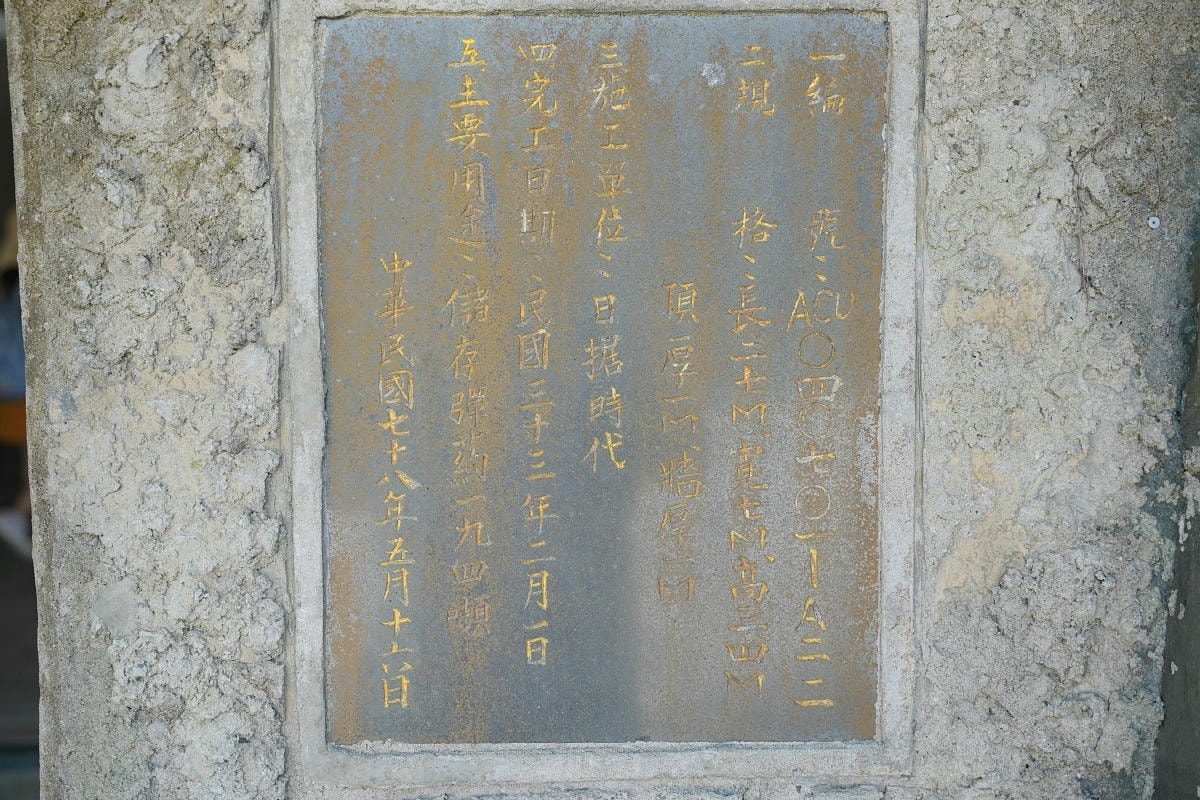 一編 號：ACU〇四〇七〇一-A二二
二規 格：長二七M、寬七M、高三四M
頂厚一M、牆厚一M
三施工單位：日据時代
四完工日期：民國三十三年二月一日
五主要用途：儲存彈葯一九四噸
中華民國七十八年五月十六日